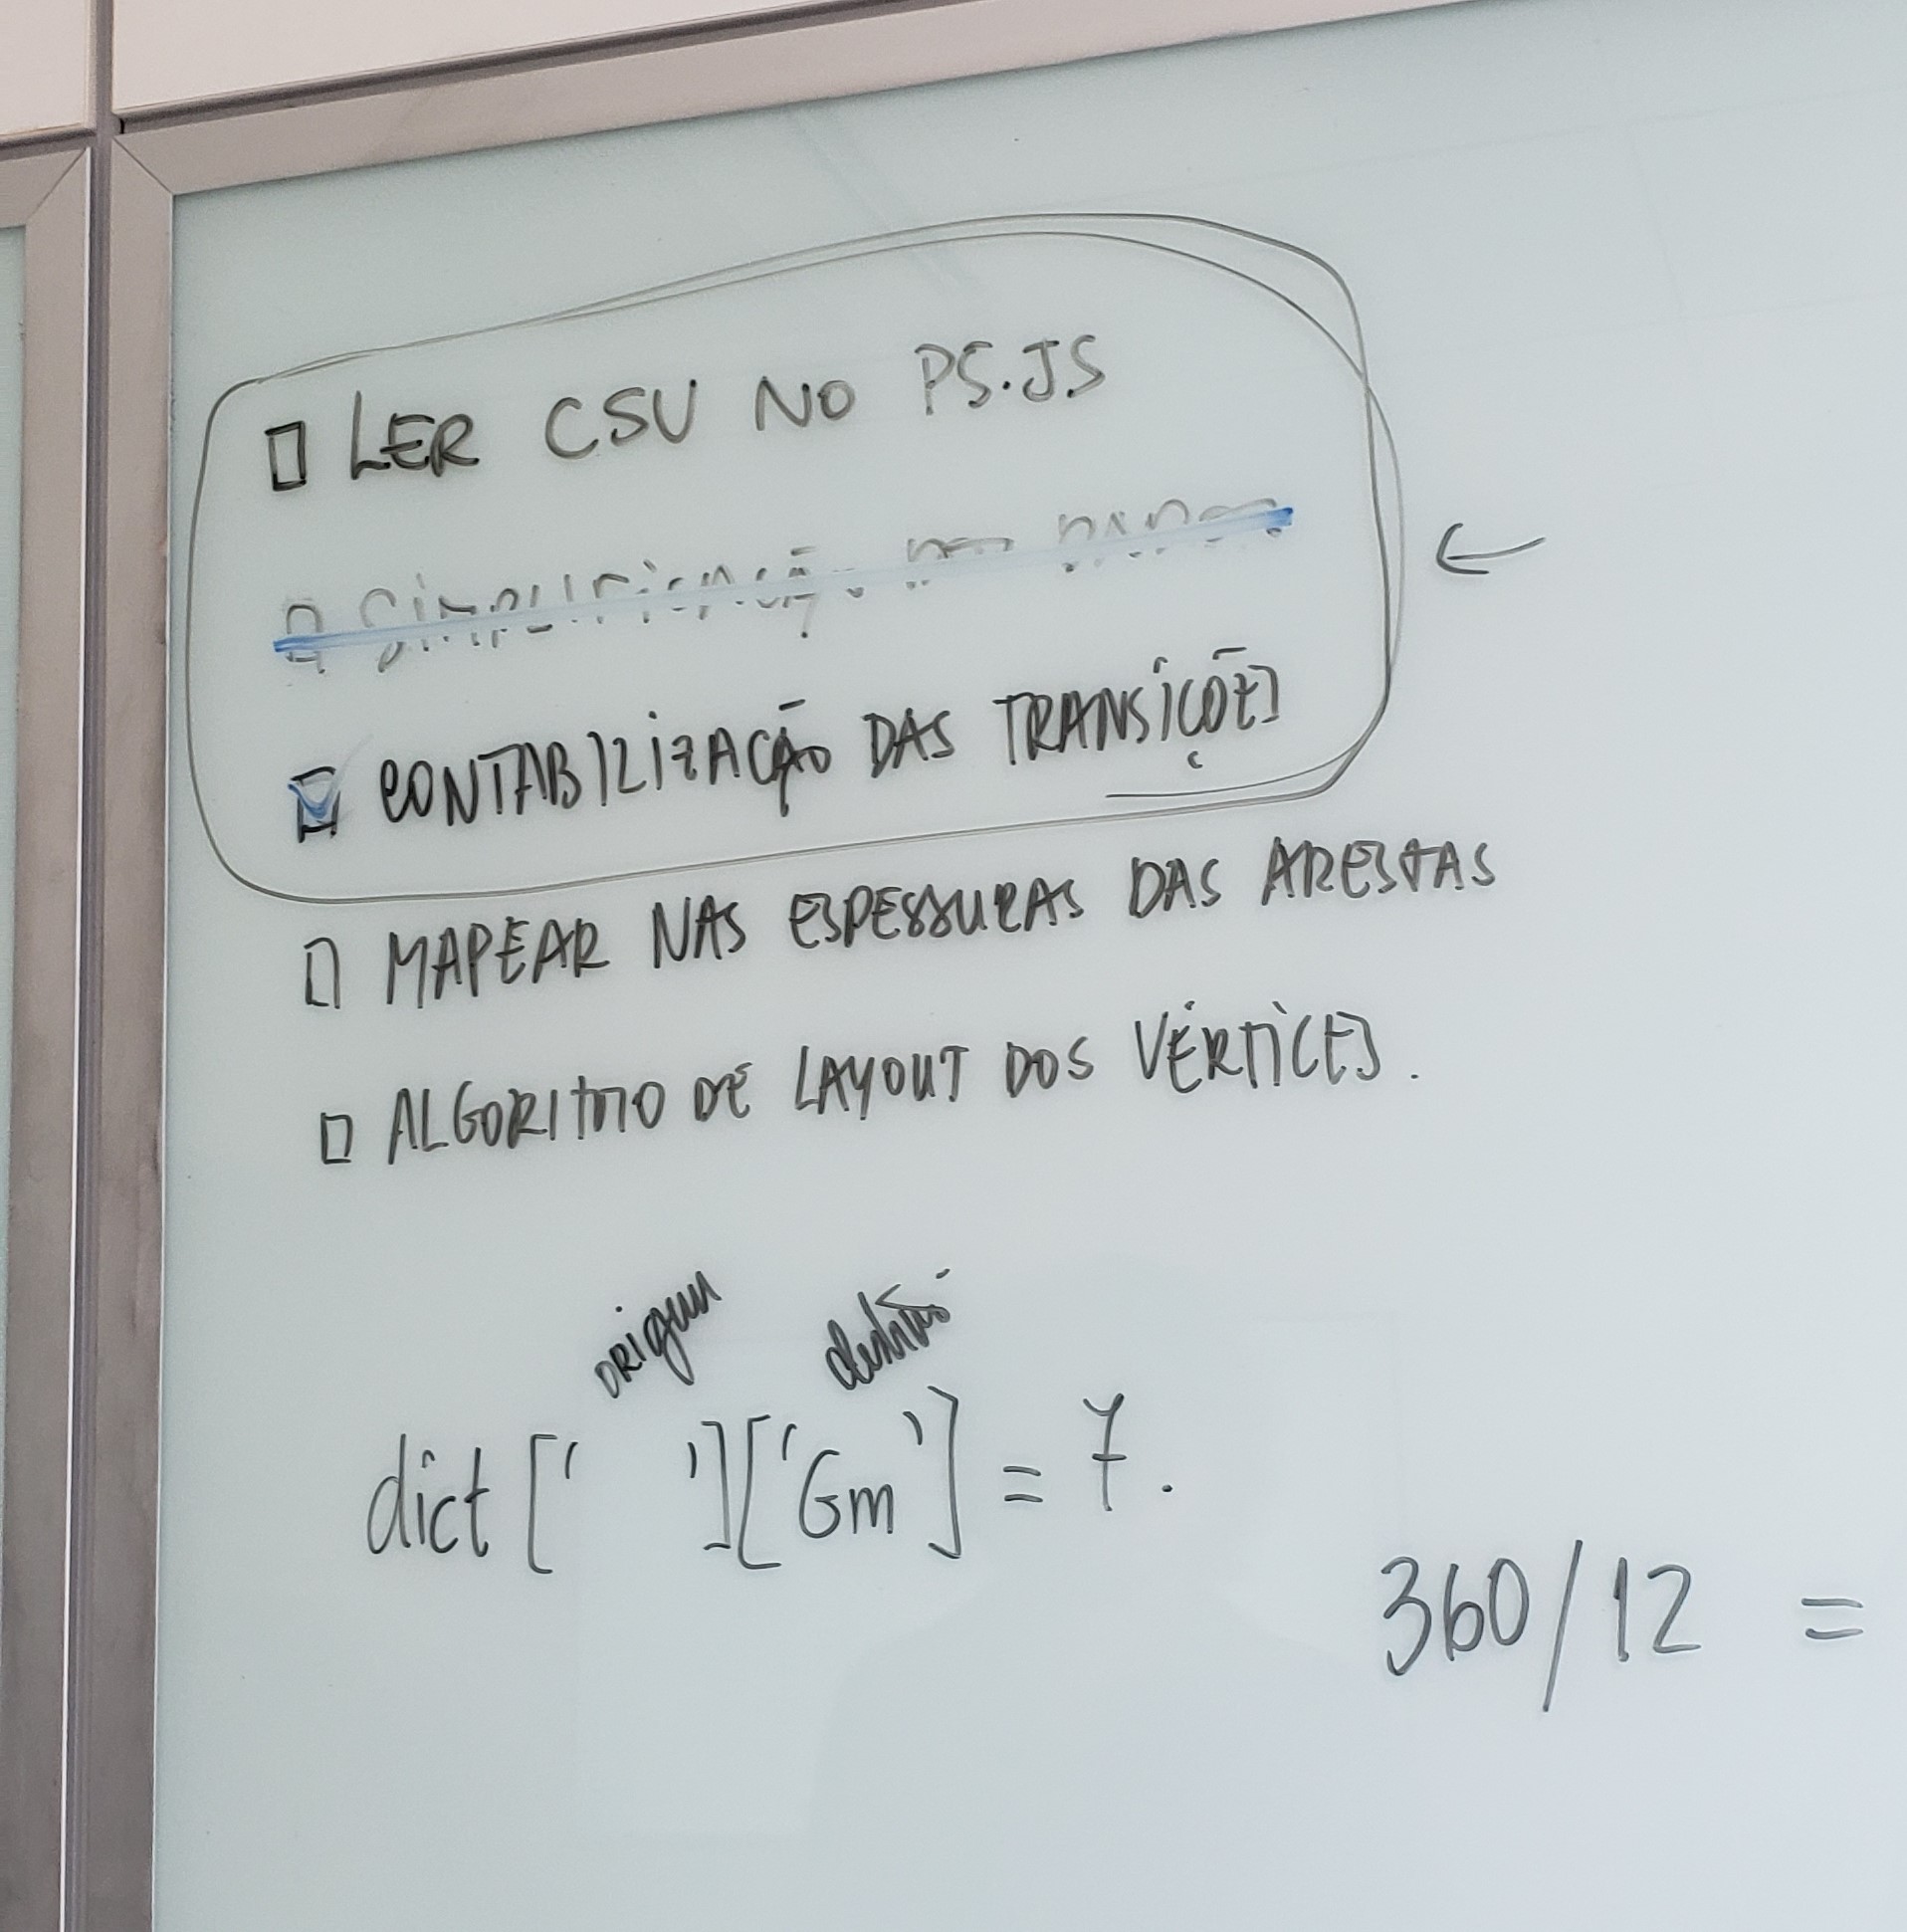 LER CSV NO P5.JS
SIMPLIFICAÇÃO DOS DADOS
CONTABILIZAÇÃO DAS TRANSIÇÕES
MAPEAR NAS ESPESSURAS DAS ARESTAS
ALGORITMO DE LAYOUT DOS VÉRTICES.
origem destino
dict [' ']['Gm'] = 7.
360/12 =